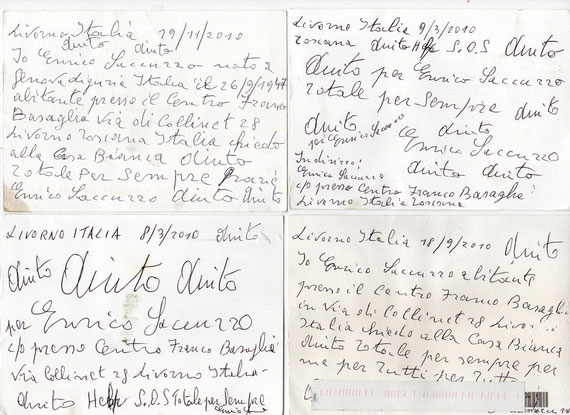 Livorno Italia 19/11/2010
aiuto aiuto
Io Enrico Saccuzzo nato a
Genova Liguria Italia il 26/9/1947
abitante presso il Centro Franco
Basaglia Via di Collinet 28
Livorno Toscana Italia chiedo
alla Casa Bianca aiuto
totale per sempre grazie
Enrico Saccuzzo aiuto aiuto
Livorno Italia 9/3/2010
Toscana aiuto Help S.O.S aiuto
aiuto per Enrico Saccuzzo
totale per sempre aiuto
aiuto aiuto
per Enrico Saccuzzo
Enrico Saccuzzo
Indirizzo:
Enrico Saccuzzo aiuto aiuto
c/o presso Centro Franco Basaglia
Livorno Italia Toscana
LIVORNO ITALIA 8/3/2010 aiuto
aiuto aiuto aiuto
per Enrico Saccuzzo
c/o presso Centro Franco Basaglia
Via Collinet 28 Livorno Italia
aiuto Help S.O.S Totale per sempre
Livorno Italia 18/9/2010 aiuto
Io Enrico Saccuzzo abitante
presso il Centro Franco Basaglia
in Via di Collinet 28
Italia chiedo alla Casa Bianca
aiuto totale per sempre per
me per tutti per tutto